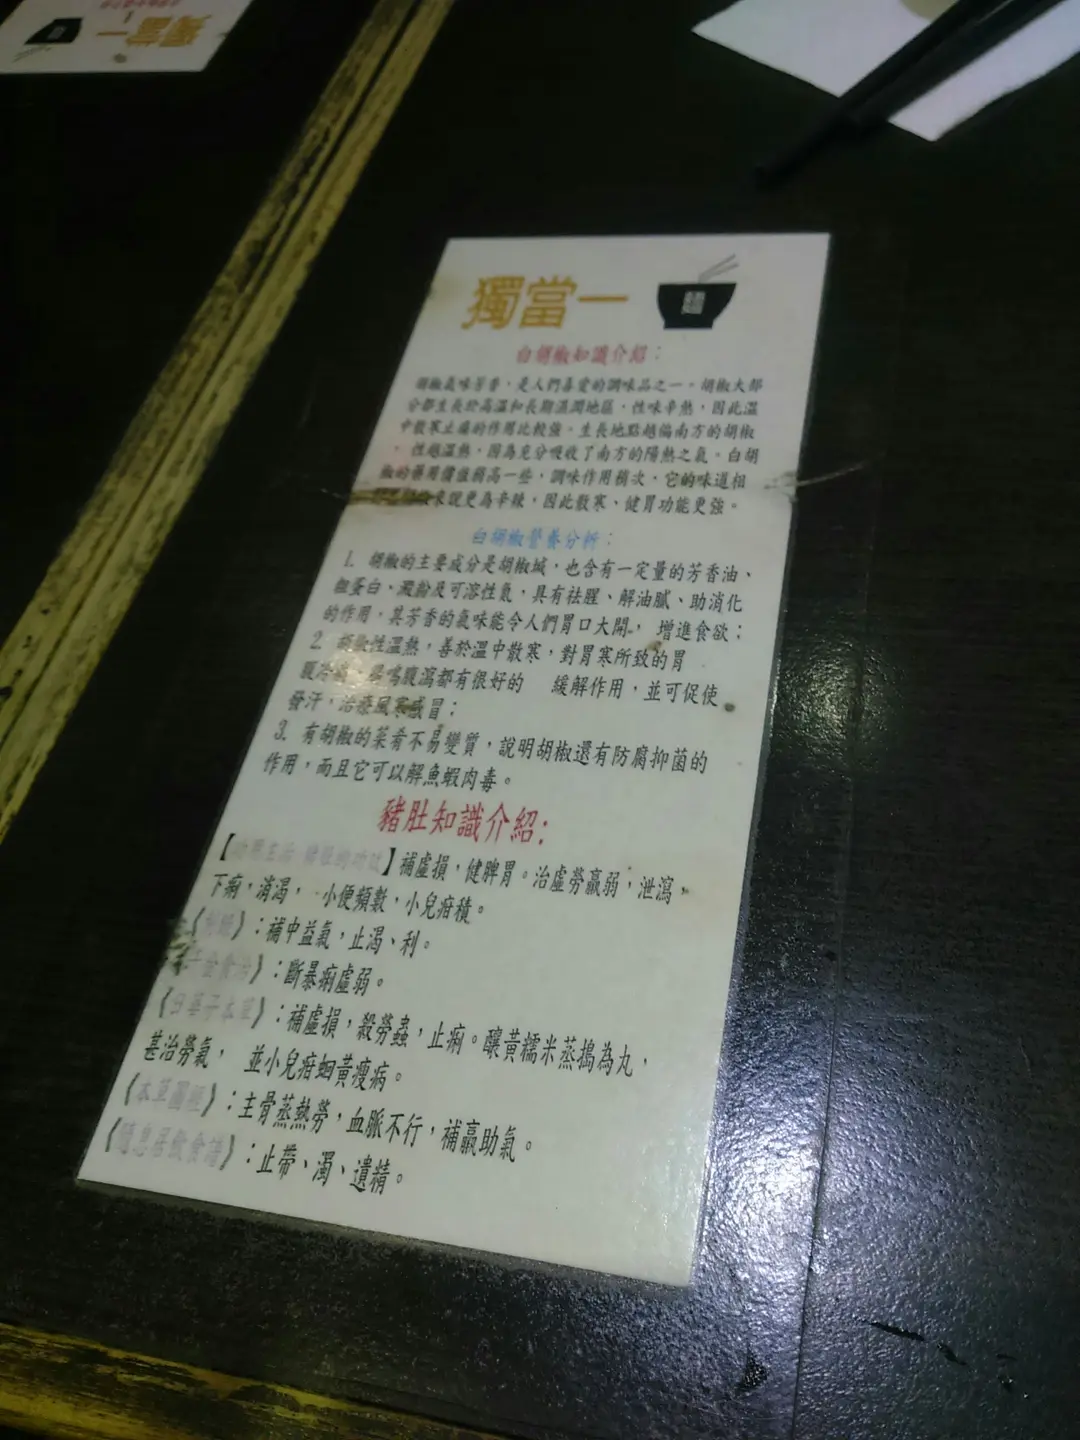 獨當一
麵
白胡椒知識介紹：
胡椒氣味芳香，是人們喜愛的調味品之一。胡椒大部
分都生長於高溫和長期濕潤地區，性味辛熱，因此溫
中散寒止痛的作用比較強。生長地點越偏南方的胡椒
，性越溫熱，因為充分吸收了南方的陽熱之氣。白胡
椒的藥用價值稍高一些，調味作用稍次，它的味道相
來說更為辛辣，因此散寒、健胃功能更強。
白胡椒營養分析：
1. 胡椒的主要成分是胡椒鹼，也含有一定量的芳香油、
粗蛋白、澱粉及可溶性氮，具有祛腥、解油膩、助消化
的作用，其芳香的氣味能令人們胃口大開， 增進食欲；
2. 胡椒性溫熱，善於溫中散寒，對胃寒所致的胃
腹冷痛、腸鳴腹瀉都有很好的 緩解作用，並可促使
發汗，治療風寒感冒；
3. 有胡椒的菜肴不易變質，說明胡椒還有防腐抑菌的
作用，而且它可以解魚蝦肉毒。
豬肚知識介紹:
【 】補虛損，健脾胃。治虛勞羸弱，泄瀉，
下痢，消渴， 小便頻數，小兒疳積。
《別錄》：補中益氣，止渴、利。
《千金食治》：斷暴痢虛弱。
《日華子本草》：補虛損，殺勞蟲，止痢。釀黃糯米蒸搗為丸，
甚治勞氣， 並小兒疳蛔黃瘦病。
《本草圖經》：主骨蒸熱勞，血脈不行，補羸助氣。
《隨息居飲食譜》：止帶、濁、遺精。
獨當一